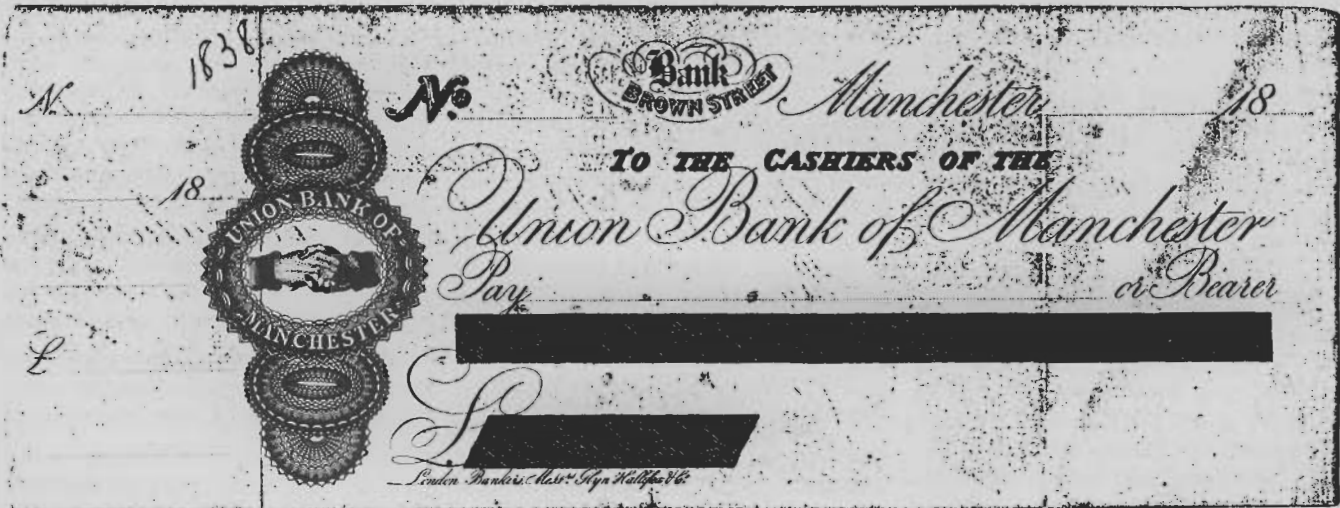 1838
No.
18
£
UNION BANK OF
MANCHESTER
No.
Bank
BROWN STREET
Manchester 18
TO THE CASHIERS OF THE
Union Bank of Manchester
Pay or Bearer
£
London Bankers, Messrs. Glyn Hallifax & Co.